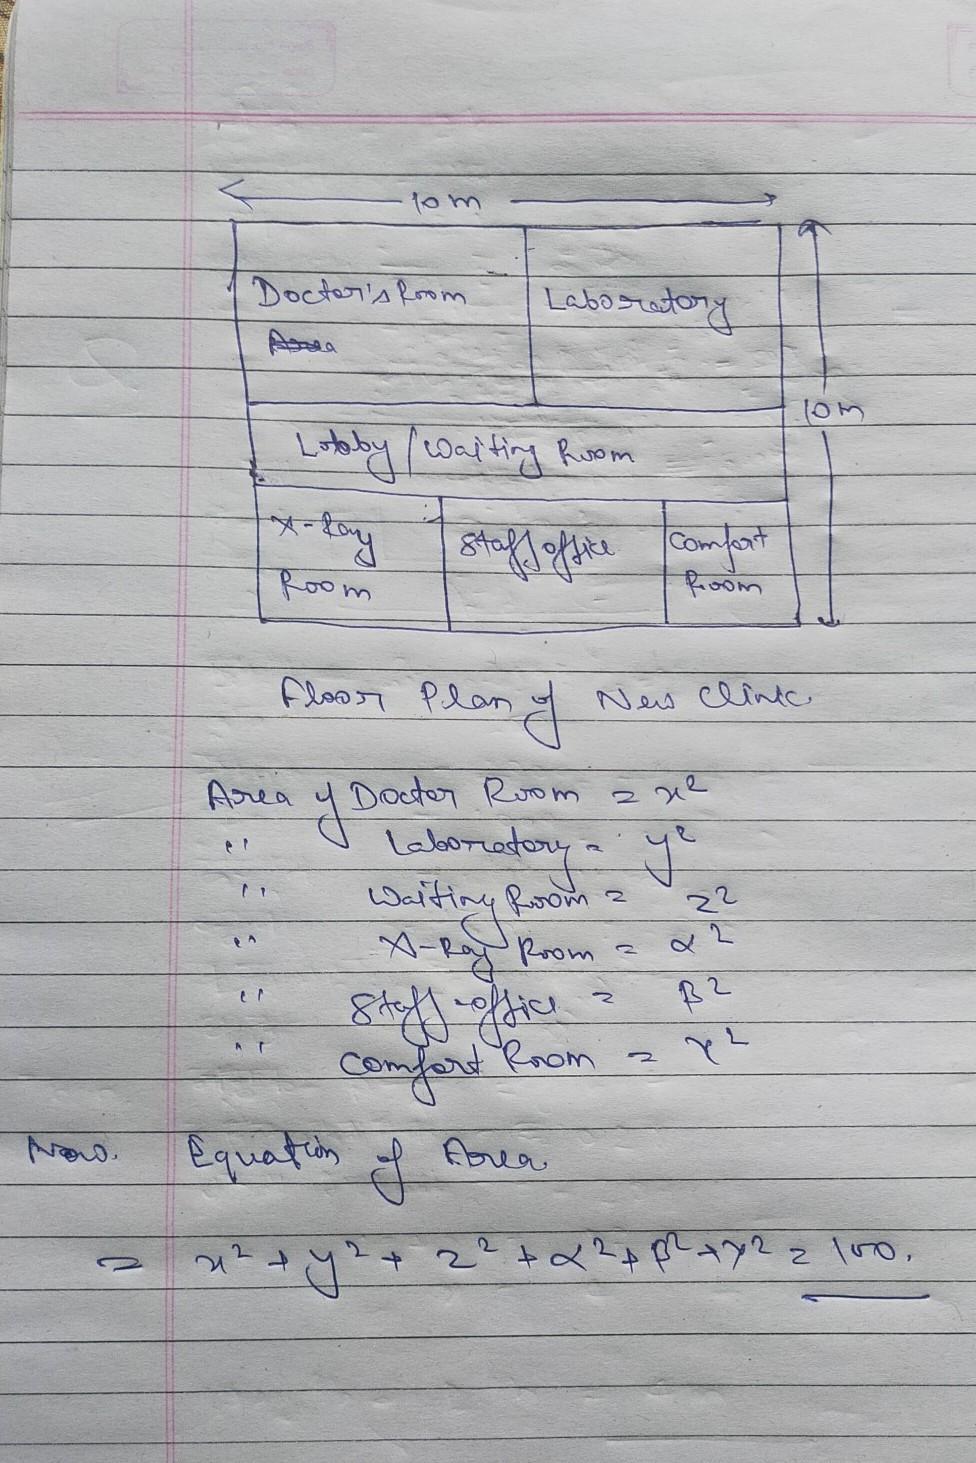 10 m
Doctor's Room
Laboratory
10m
Lobby / Waiting Room
X-Ray
Room
Staff office
Comfort
Room
Floor Plan of New Clinic
Area of Doctor Room = x²
" Laboratory = y²
" Waiting Room = z²
" X-Ray Room = α²
" Staff-office = β²
" Comfort Room = γ²
Now. Equation of Area
= x² + y² + z² + α² + β² + γ² = 100.